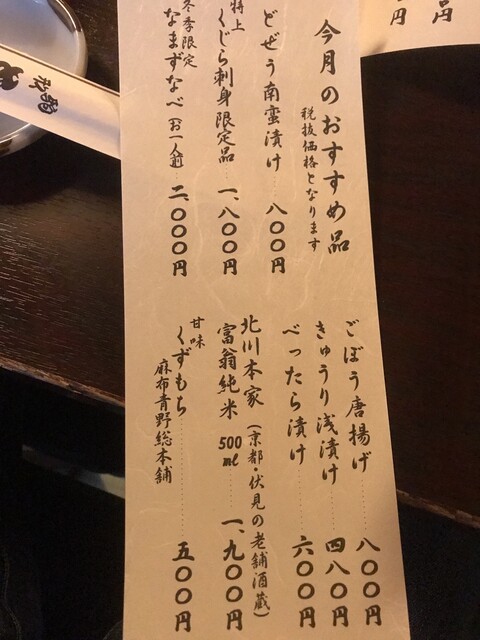 今月のおすすめ品
税抜価格となります
どぜう南蛮漬け 八〇〇円
特上
くじら刺身限定品 … 一、八〇〇円
冬季限定
なまずなべ(お一人前) … 二、〇〇〇円
ごぼう唐揚げ … 八〇〇円
きゅうり浅漬け … 四八〇円
べったら漬け … 六〇〇円
北川本家(京都・伏見の老舗酒蔵)
富翁純米 500ml … 一、九〇〇円
甘味
くずもち … 五〇〇円
麻布青野総本舗
円
円